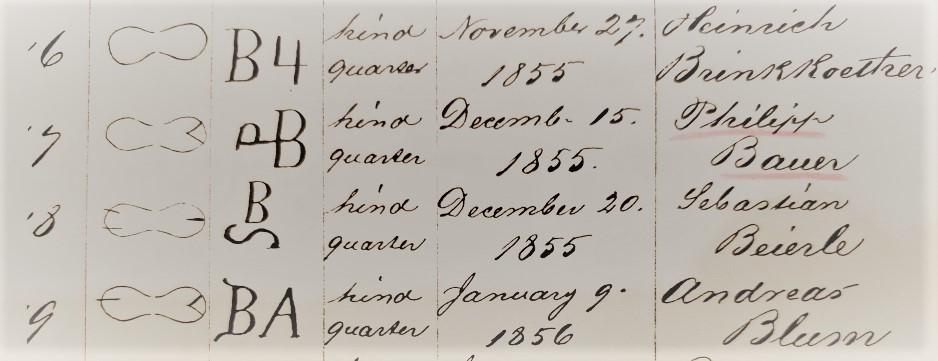 '6 B4 hind November 27. Heinrich
quarter 1855 Brinkkoetter
'7 PB hind Decemb. 15. Philipp
quarter 1855. Bauer
'8 B hind December 20. Sebastian
S quarter 1855 Beierle
'9 BA hind January 9. Andreas
quarter 1856 Blum